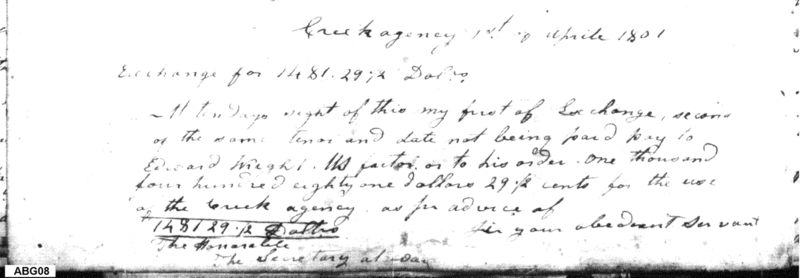 Creek agency 1st of Aprile 1801
Exchange for 1481.29½ Dolrs
At ten days sight of this my first of Exchange, second
of the same tenor and date not being paid pay to
Edward Wright. US factor or to his order. One thousand
four hundred eighty one dollars 29½ cents for the use
of the Creek agency, as pr advice of
1481 29.½ Dollrs Sir your obedient Servant
The Honorable
The Secretary at war
ABG08